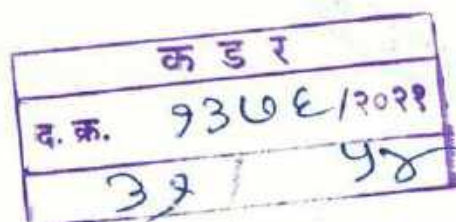 क ड र
द. क्र. १३७६/२०२१
३१ / ५४